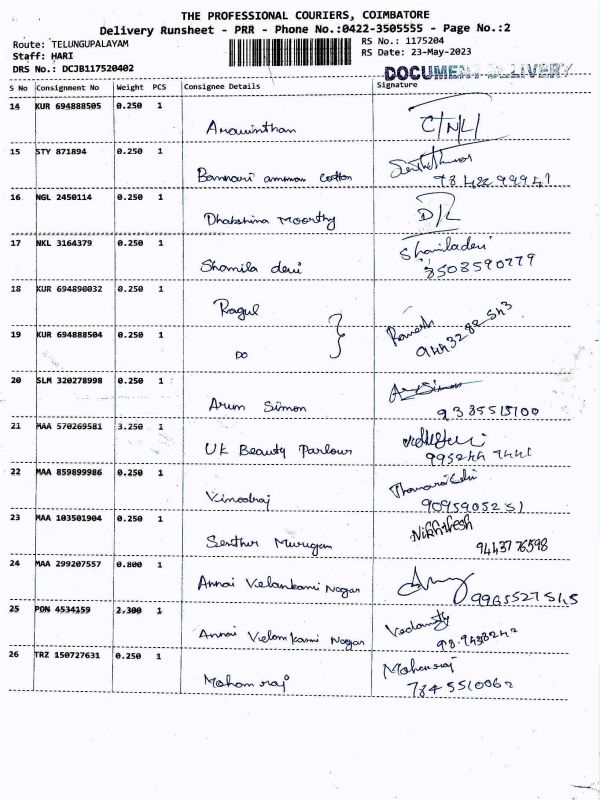 THE PROFESSIONAL COURIERS, COIMBATORE
Delivery Runsheet - PRR - Phone No.:0422-3505555 - Page No.:2
Route: TELUNGUPALAYAM RS No.: 1175204
Staff: HARI RS Date: 23-May-2023
DRS No.: DCJB117520402 DOCUMENT DELIVERY
S No Consignment No Weight PCS Consignee Details Signature
14 KUR 694888505 0.250 1
Arawinthan
15 STY 871894 0.250 1
Bannari amman Cotton
16 NGL 2450114 0.250 1
Dhakshina Moorthy
17 NKL 3164379 0.250 1 Shamiladevi
Shamila devi 8508590779
18 KUR 694890032 0.250 1
Ragul
19 KUR 694888504 0.250 1 Ramesh
DO
20 SLM 320278998 0.250 1
Arun Simon 9385515100
21 MAA 570269581 3.250 1
UK Beauty Parlour
22 MAA 859899986 0.250 1
Vinodraj
23 MAA 103501904 0.250 1
Senthur Murugan 9443776598
24 MAA 299207557 0.800 1
Annai Velankanni Nagar
25 PON 4534159 2.300 1
Annai Velankanni Nagar
26 TRZ 150727631 0.250 1 Mohanraj
Mohanraj